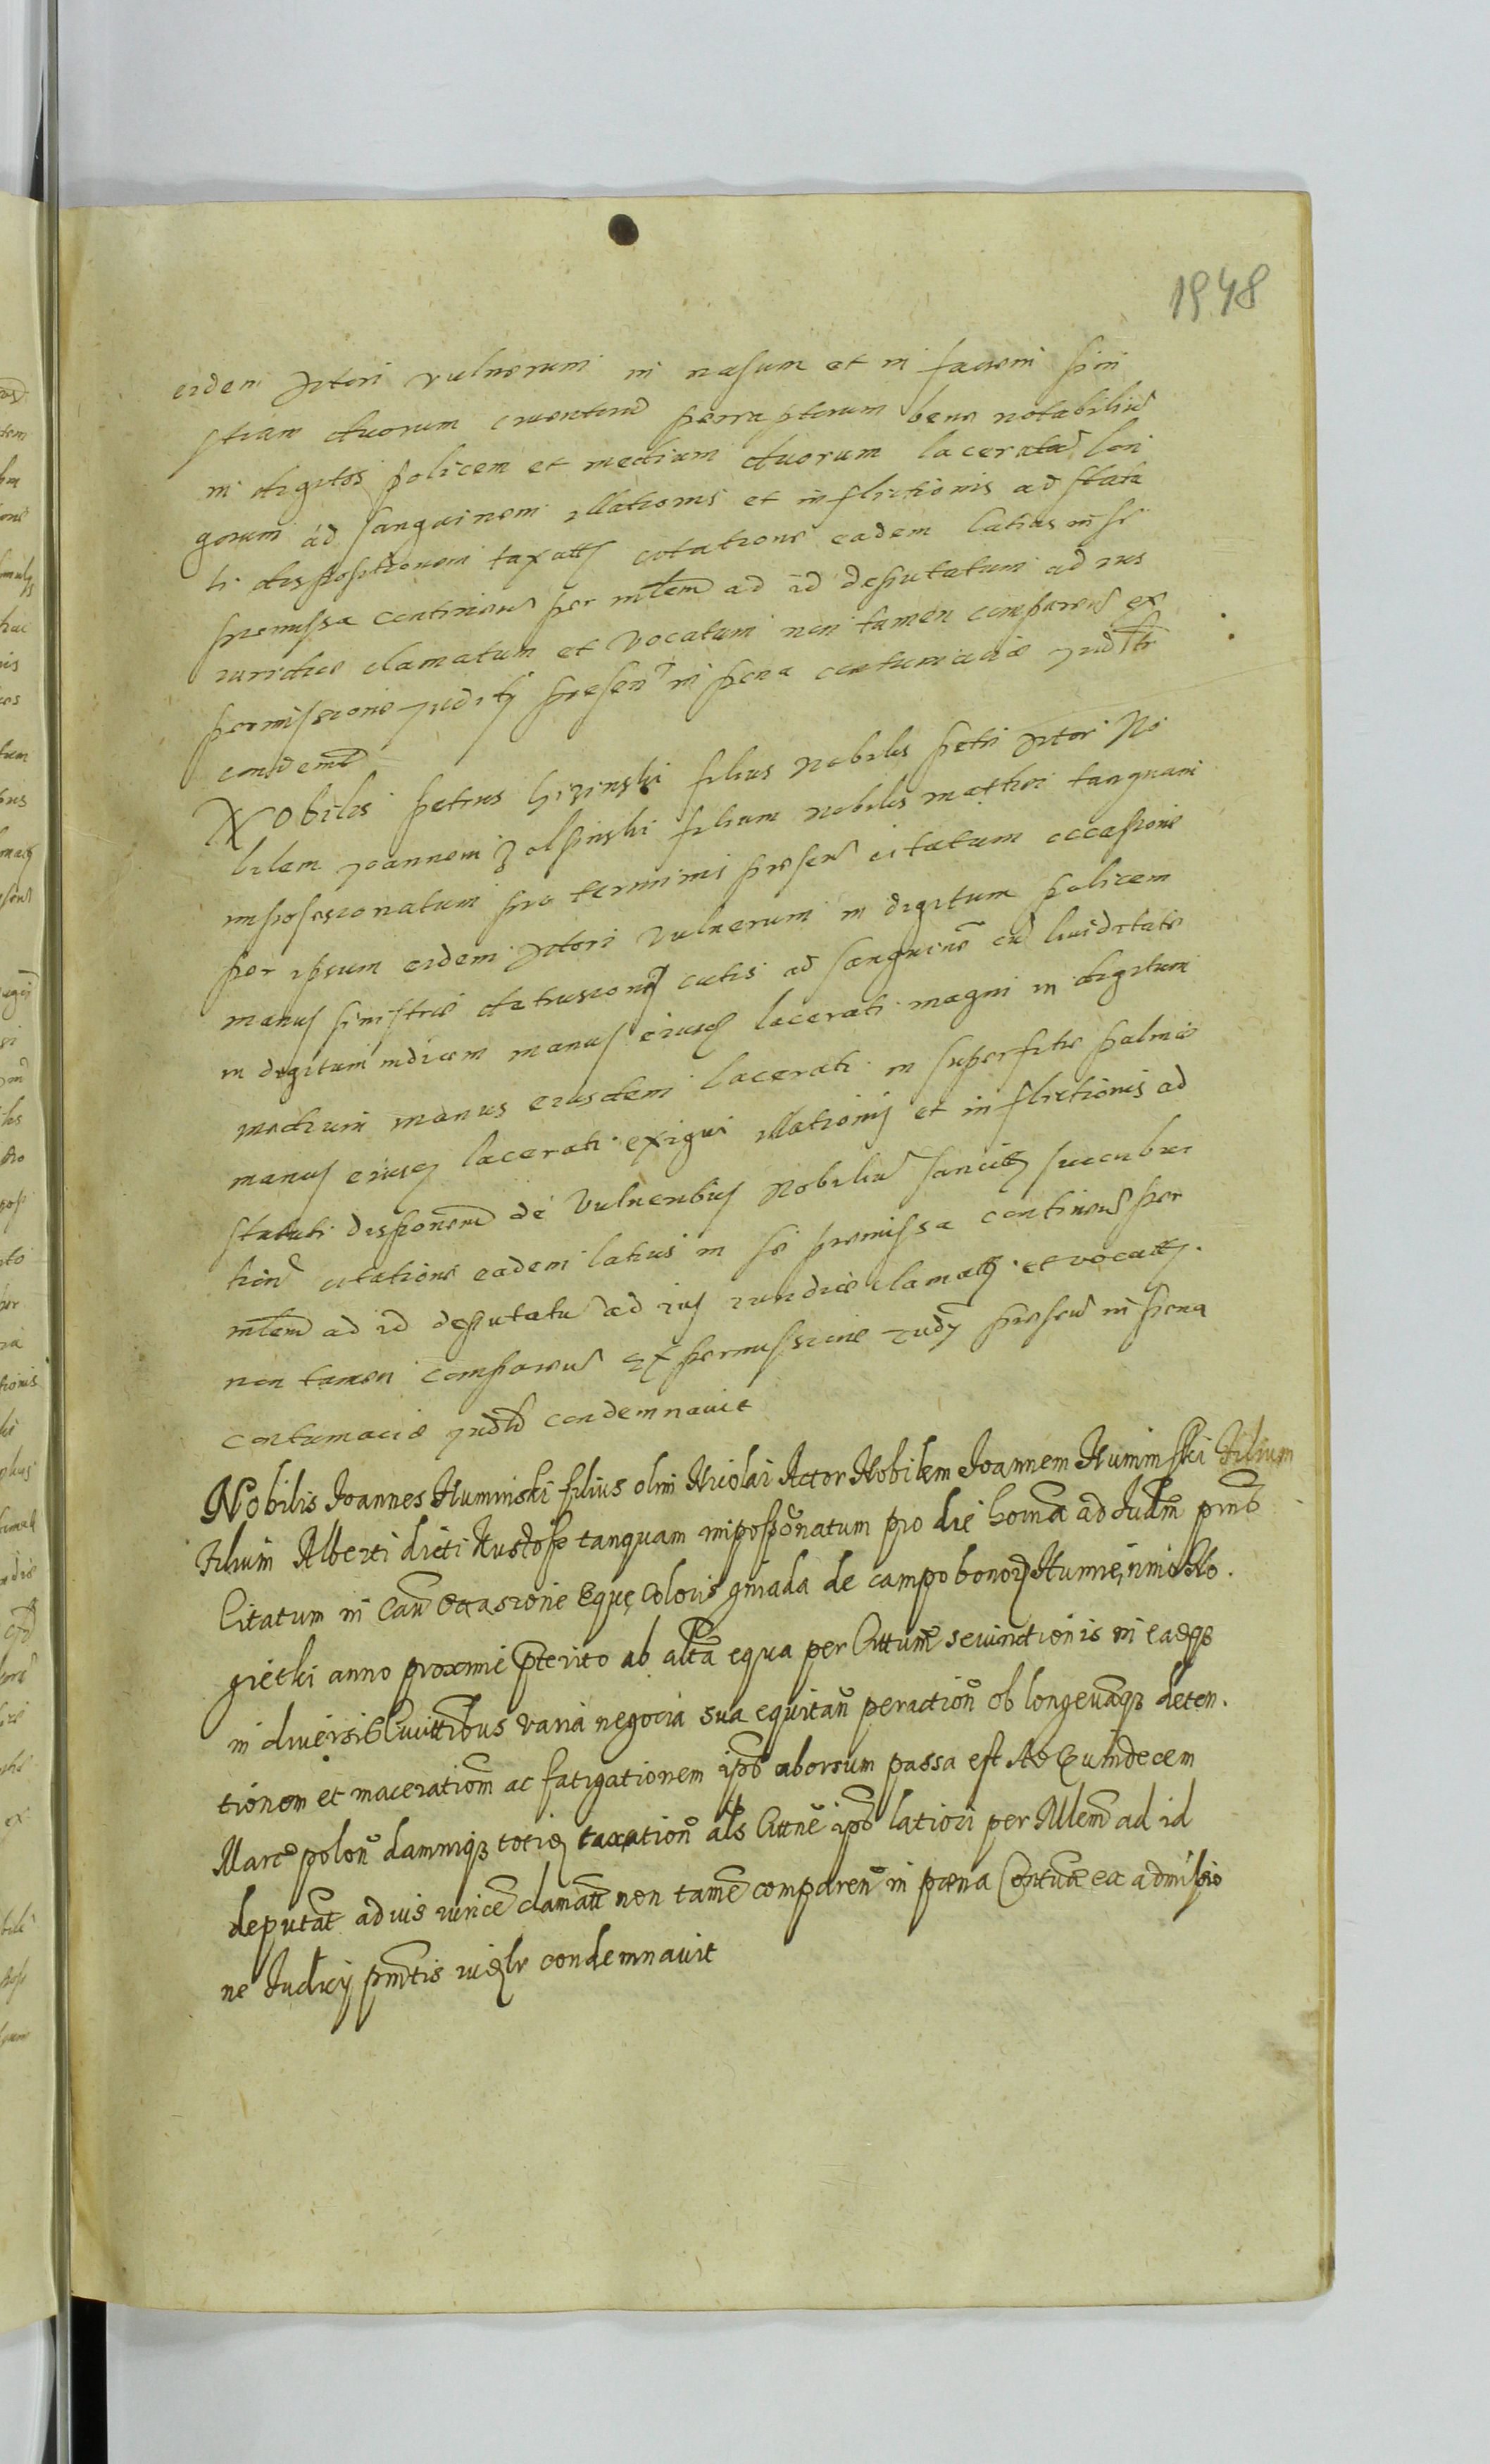 1948
eidem Actori vulnerum in nasum et in faciem sini
stram duorum cruentoru perraptorum bene notabiliu
in digitos policem et medium duorum laceratoru lon
gorum ad sanguinem illationis et inflictionis ad statu
ti dispositionem taxatis citatione eadem latius in se
premissa continen per mlem ad id deputatum ad ius
iuridice clamatum et vocatum non tamen comparen ex
permissione judity presen in pena contumaciae judltr
condemt
Nobilis Petrus Gizinski filius nobilis Petri Actor No
bilem Joannem Zolpinski filium nobilis Mathei tanquam
impossesionatum pro terminis presen citatum occasione
per ipsum eidem Actori vulnerum in digitum policem
manus sinistre detrusionis cutis ad sanguine cu liuiditate
in digitum indicem manus eiusq lacerati magni in digitum
medium manus eiusdem lacerati in superfitie palmae
manus eiusq lacerati exigui illationis et inflictionis ad
statuti disponem de vulneribus Nobiliu sancitis succubui
tion citatione eadem latius in se premissa continen per
mlem ad id deputatu ad ius iuridice clamatis et vocatis
non tamen comparen Ex permissione Judy presen in pena
contumaciae judld condemnavit
Nobilis Joannes Huminski filius olim Nicolai Actor Nobilem Joannem Huminski Filium
Filium Alberti dicti tanquam imposs̃onatum pro die horna ad Judm pmt
Citatum in Cau Occasione Eque Coloris gniada de campo bonor Humieimo Ro
gietki anno proxime pterito ab alta equa per Cittum seiunctionis in eaqs
in diversis Ciuittibus varia negocia sua equitan peraction ob longeuaqs deten
tionem et maceratiom ac fatigationem ips aborsum passa est Ao Quindecem
Marc polon damniqs totiq taxation als Cittne ips latiori per Mlem ad id
deputat ad ius iurice clamatt non tame comparen in pœna Contuae ex admissio
ne Judicy pmtis iuqlr condemnauit